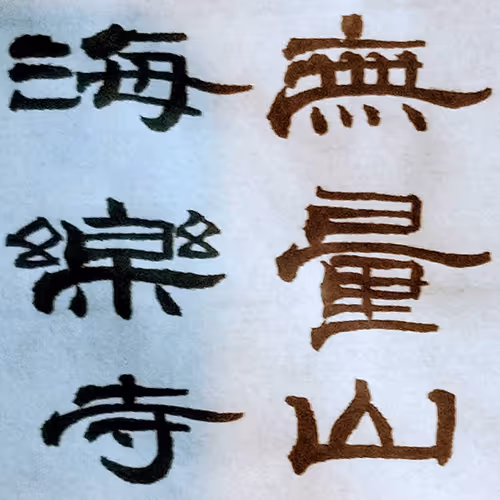 無量山
海樂寺